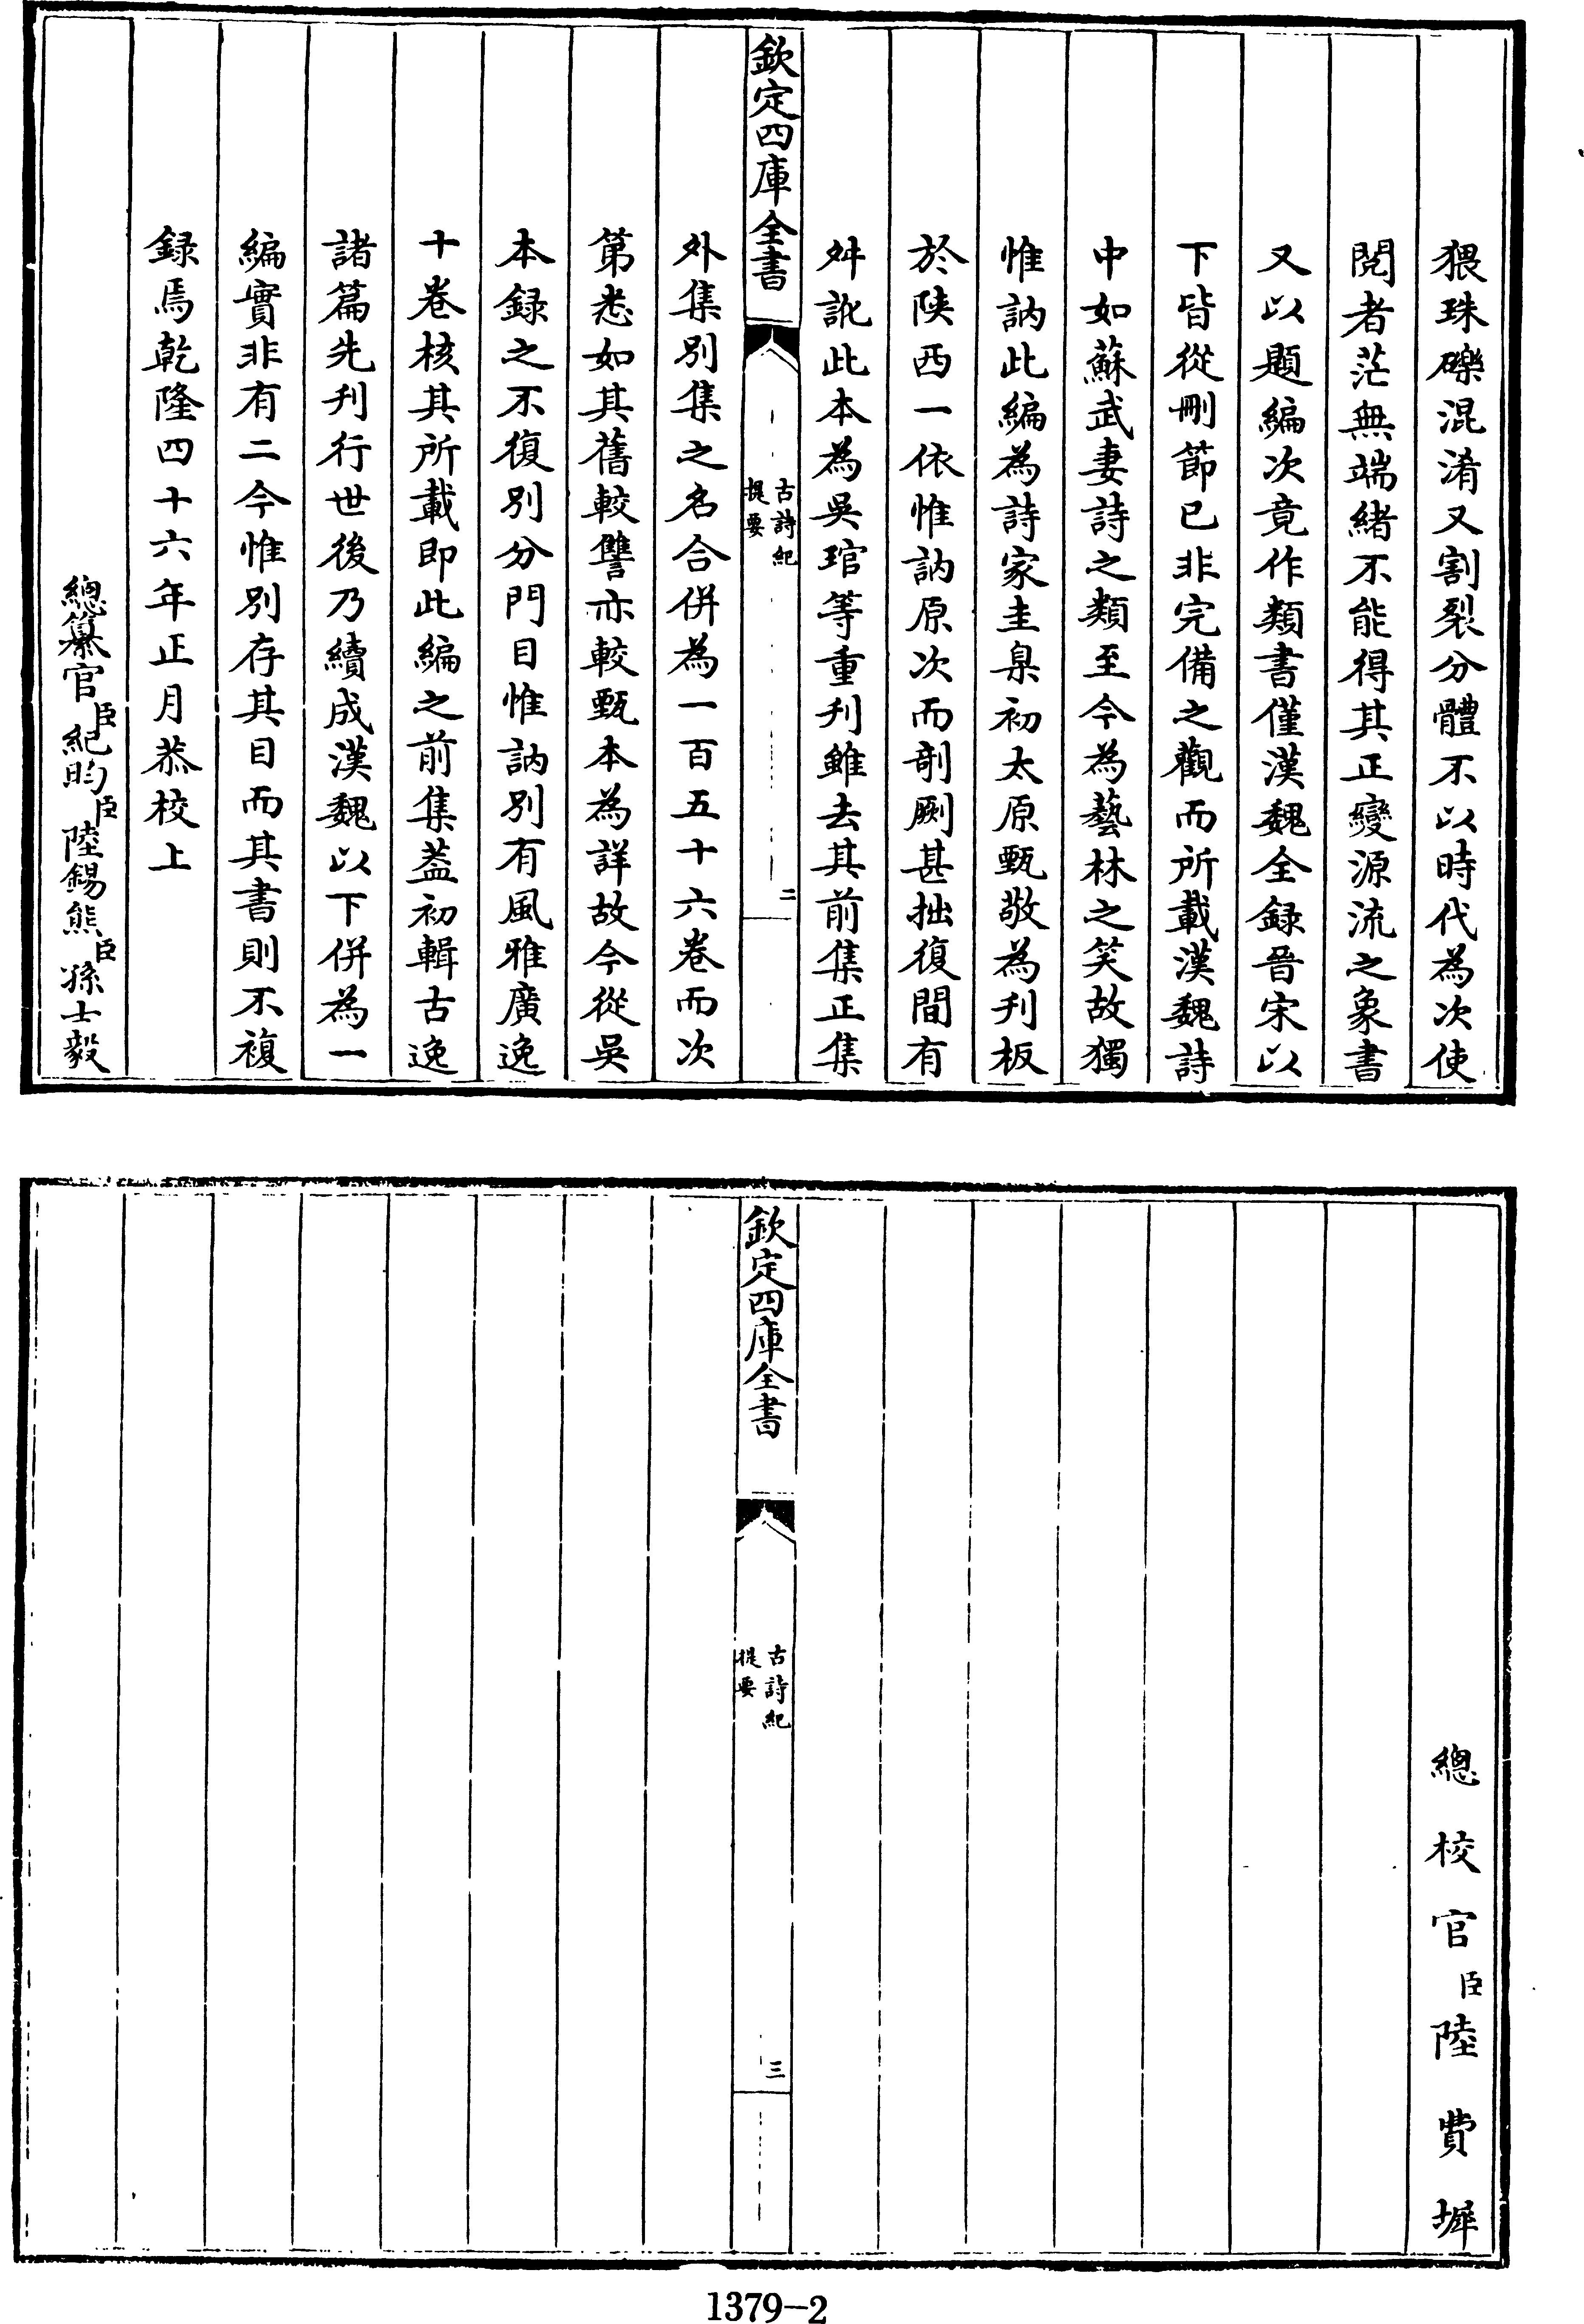 猥珠礫混淆又割裂分體不以時代為次使
閱者茫無端緒不能得其正變源流之象書
又以題編次竟作類書僅漢魏全録晉宋以
下皆從刪節已非完備之觀而所載漢魏詩
中如蘇武妻詩之類至今為藝林之笑故獨
惟訥此編為詩家圭臬初太原甄敬為刋板
於陜西一依惟訥原次而剞劂甚拙復間有
舛訛此本為吳琯等重刋雖去其前集正集
欽定四庫全書
古詩紀
提要
二
外集別集之名合併為一百五十六卷而次
第悉如其舊較讐亦較甄本為詳故今從吳
本録之不復別分門目惟訥別有風雅廣逸
十卷核其所載即此編之前集葢初輯古逸
諸篇先刋行世後乃續成漢魏以下併為一
編實非有二今惟別存其目而其書則不複
録焉乾隆四十六年正月恭校上
總纂官臣紀昀臣陸錫熊臣孫士毅
總校官臣陸費墀
欽定四庫全書
古詩紀
提要
三
1379-2